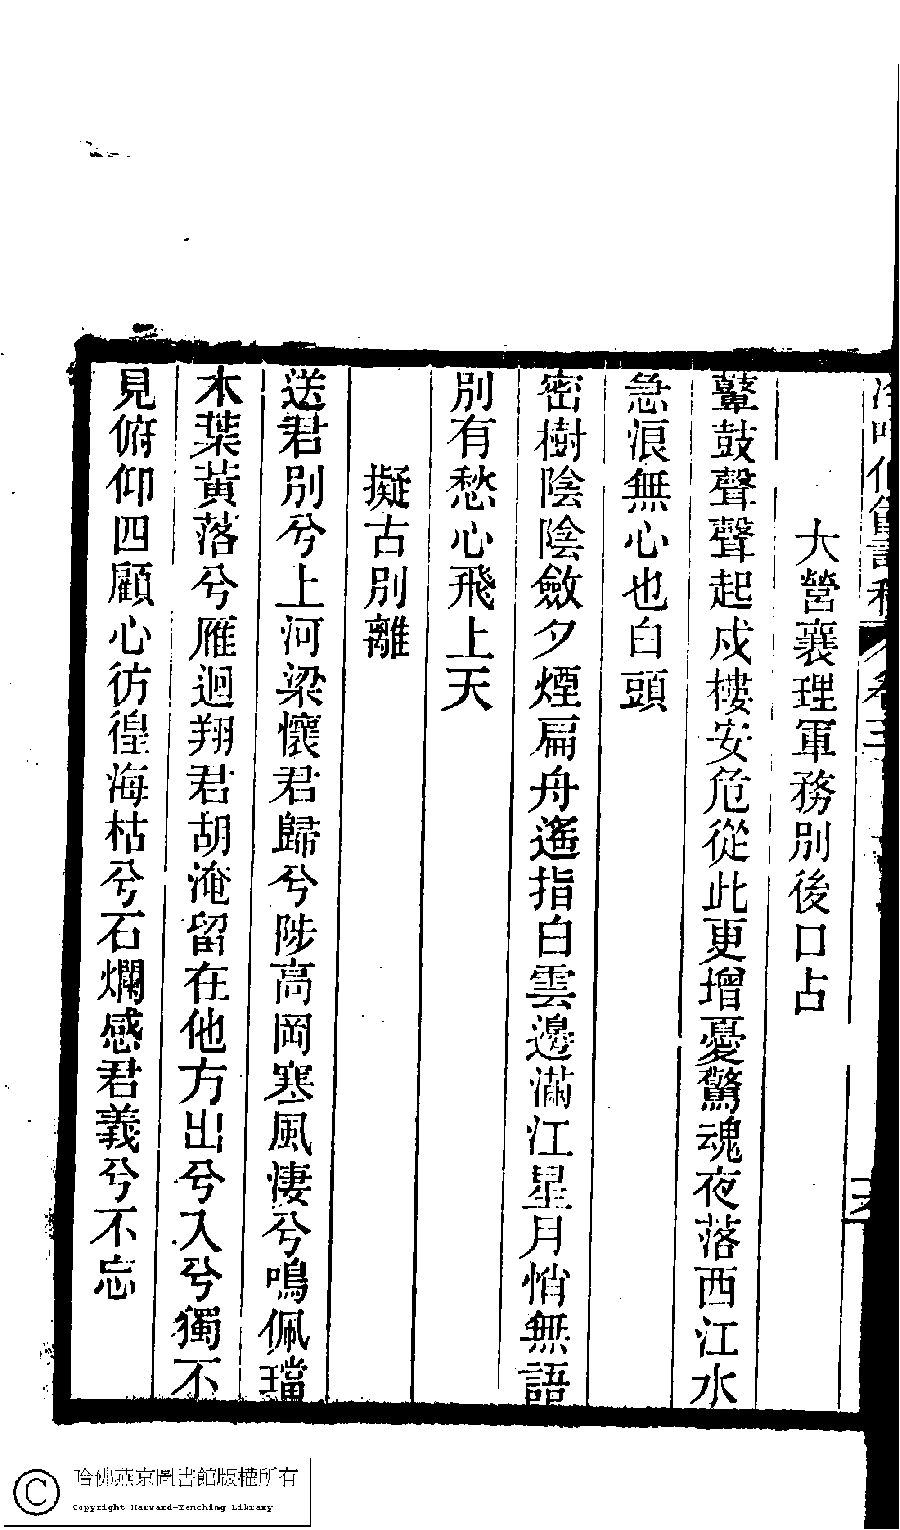 大營襄理軍務別後口占
鼙鼓聲聲起戍樓安危從此更增憂驚魂夜落西江水
急浪無心也白頭
密樹陰陰斂夕煙扁舟遙指白雲邊滿江星月悄無語
別有愁心飛上天
擬古別離
送君別兮上河梁懷君歸兮陟高岡寒風淒兮鳴佩璫
木葉黃落兮雁迴翔君胡淹留在他方出兮入兮獨不
見俯仰四顧心彷徨海枯兮石爛感君義兮不忘
哈佛燕京圖書館版權所有
Copyright Harvard-Yenching Library